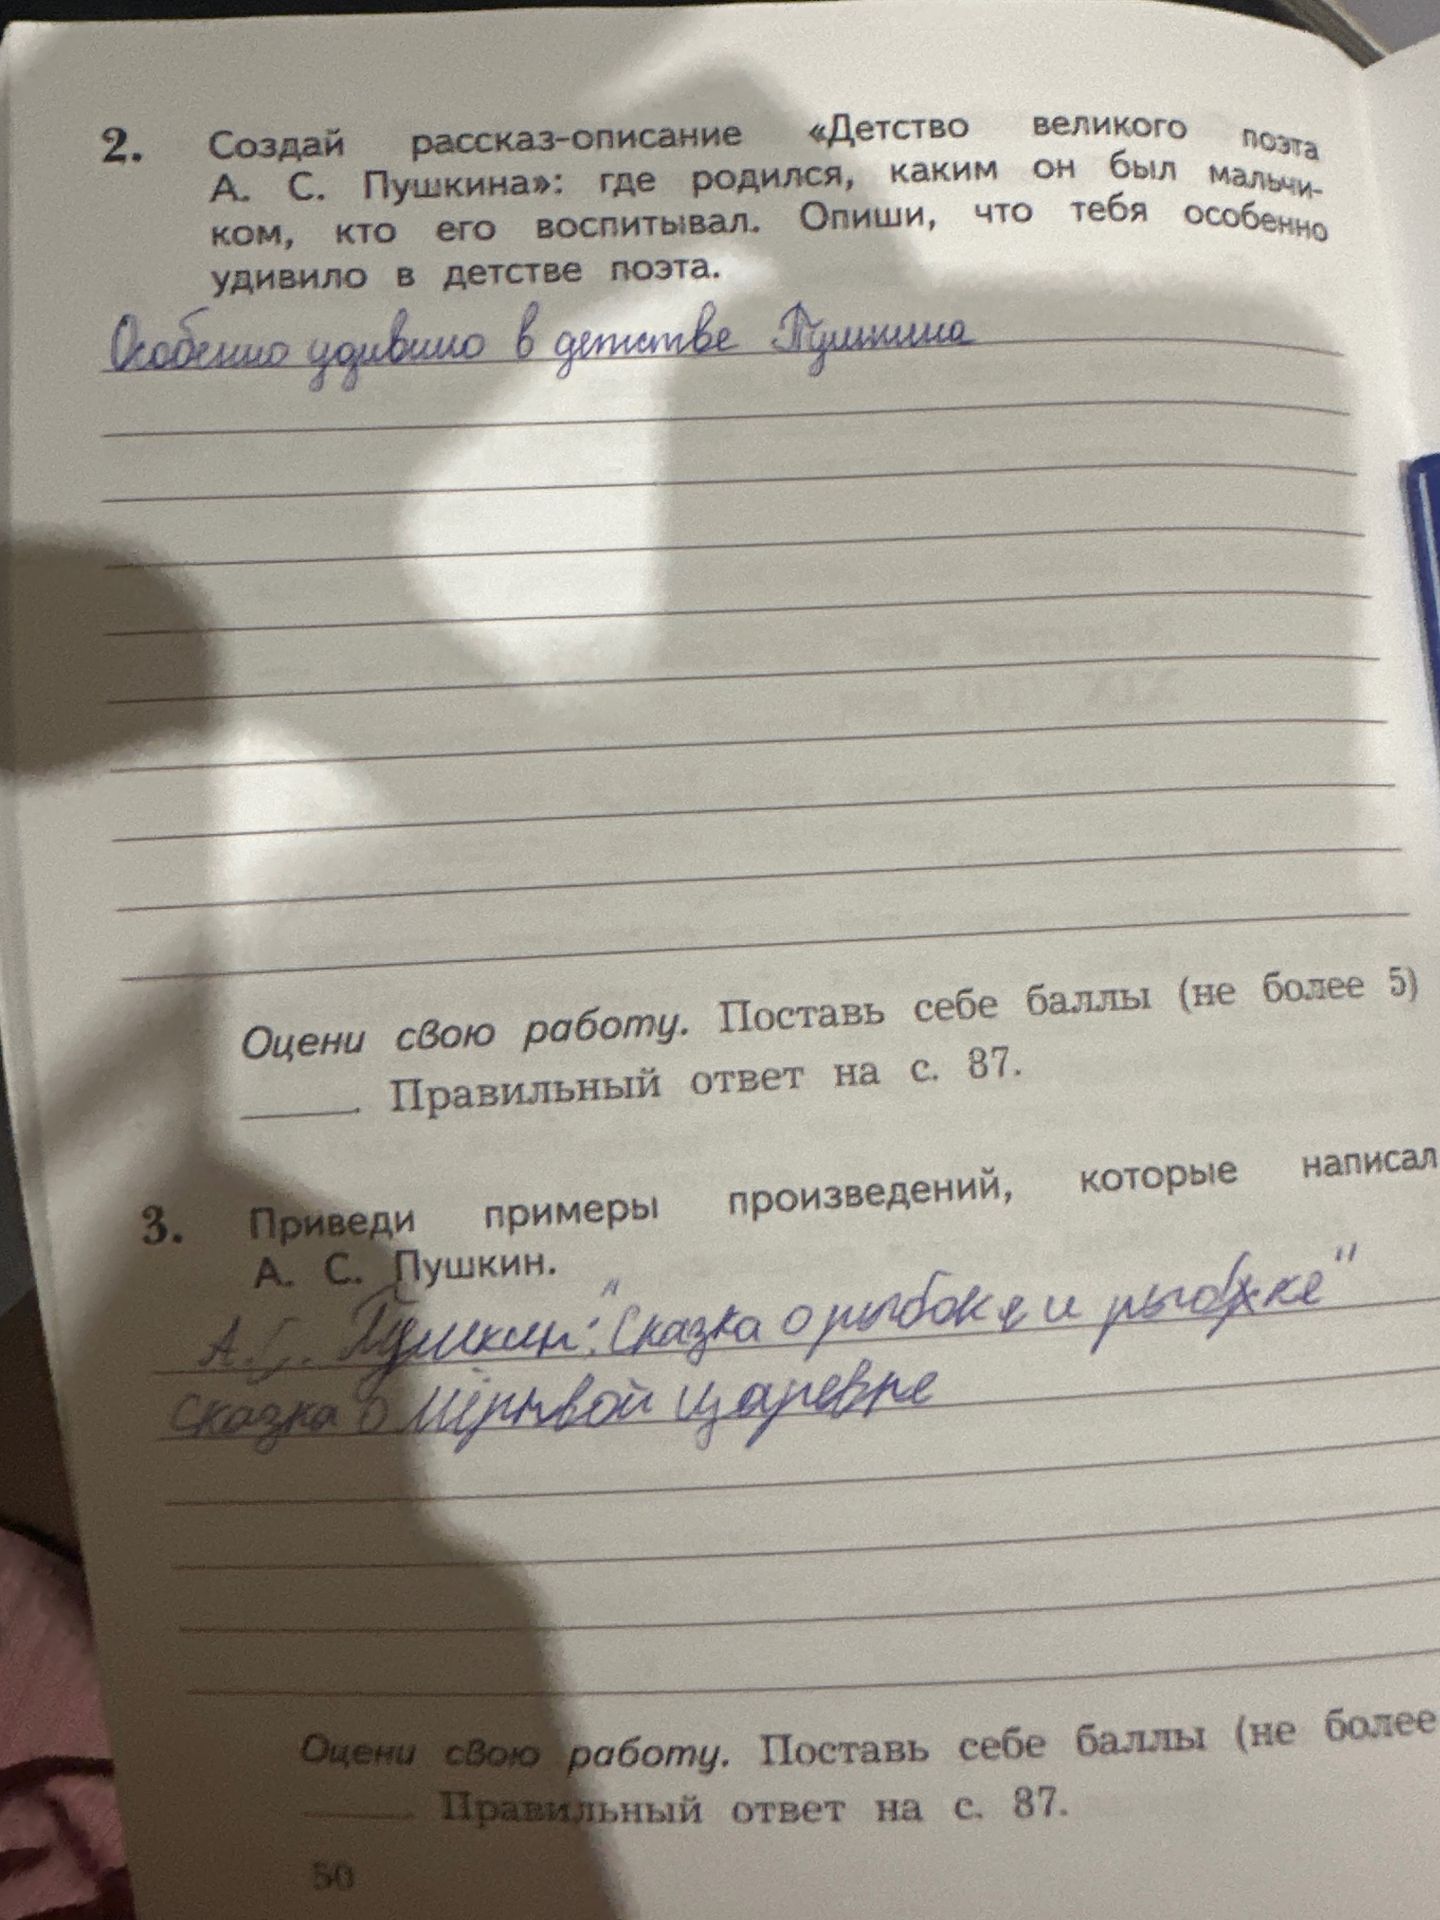 2. Создай рассказ-описание «Детство великого поэта
А. С. Пушкина»: где родился, каким он был мальчи-
ком, кто его воспитывал. Опиши, что тебя особенно
удивило в детстве поэта.
Особенно удивило в детстве Пушкина
Оцени свою работу. Поставь себе баллы (не более 5)
____. Правильный ответ на с. 87.
3. Приведи примеры произведений, которые написал
А. С. Пушкин.
А.С. Пушкин: "Сказка о рыбаке и рыбке"
Сказка о Мёртвой царевне
Оцени свою работу. Поставь себе баллы (не более
____ Правильный ответ на с. 87.
50